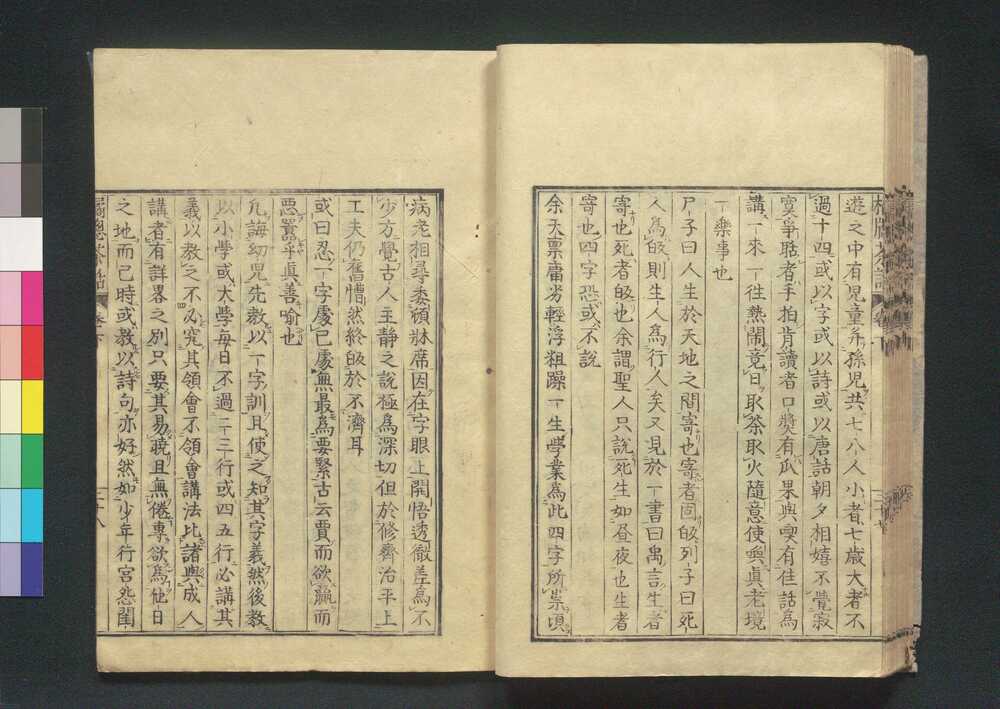 遊之中有児童弁孫児共七八人小者七歳大者不
過十四或以字或以詩或以唐話朝夕相嬉不覺寂
寞爭聒者手拍肯讀者口奬有瓜果與喫有佳話為
講一來一往熱鬧竟日取茶取火隨意使喚眞老境
一樂事也
尸子曰人生於天地之間寄也寄者固皈列子曰死
人為皈則生人為行人矣又見於一書曰禹言生者
寄也死者皈也余謂聖人只説死生如昼夜也生者
寄也四字恐或不説
余天禀庸劣輕浮粗躁一生學業為此四字所祟頃
病尭相尋委頓牀席因在字眼上開悟透徹差為不
少方覺古人主靜之説極為深切但於修齊治平上
工夫仍舊懵然終皈於不濟耳
或曰忍一字處己處無最為要緊古云賈而欲贏而
惡囂乎眞善喻也
凢誨幼児先教以一字訓且使之知其字義然後教
以小學或大學毎日不過二三行或四五行必講其
義以教之不必究其領會不領會講法比諸與成人
講者有詳畧之別只要其易暁且無倦專欲為他日
之地而已時或教以詩句亦好然如少年行宮怨閨
橘牕茶話
巻下
二十八